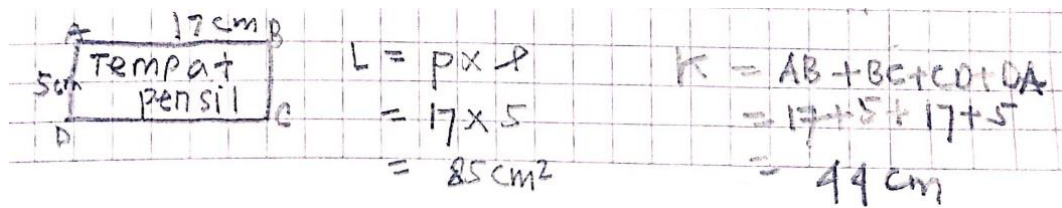 A 17 cm B
5cm Tempat
pensil
D C
L = p x l
= 17 x 5
= 85 cm²
K = AB + BC + CD + DA
= 17 + 5 + 17 + 5
= 44 cm